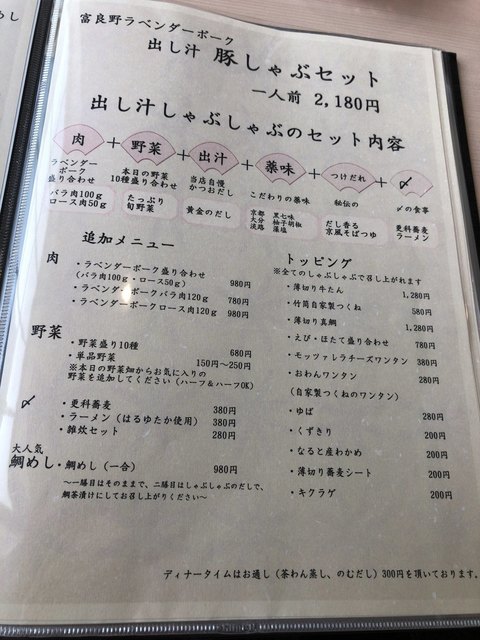 富良野ラベンダーポーク
出し汁 豚しゃぶセット
一人前 2,180円
出し汁しゃぶしゃぶのセット内容
肉 + 野菜 + 出汁 + 薬味 + つけだれ + 〆
ラベンダーポーク盛り合わせ
本日の野菜10種盛り合わせ
当店自慢かつおだし
こだわりの薬味
秘伝の
〆の食事
バラ肉100g
ロース肉50g
たっぷり旬野菜
黄金のだし
京都 黒七味
大分 柚子胡椒
淡路 藻塩
だし香る京風そばつゆ
更科蕎麦
ラーメン
追加メニュー
肉
・ラベンダーポーク盛り合わせ
(バラ肉100g・ロース50g) 980円
・ラベンダーポークバラ肉120g 780円
・ラベンダーポークロース肉120g 980円
野菜
・野菜盛り10種 680円
・単品野菜 150円〜250円
※本日の野菜畑からお気に入りの
野菜を追加してください(ハーフ&ハーフOK)
〆
・更科蕎麦 380円
・ラーメン(はるゆたか使用) 380円
・雑炊セット 280円
大人気
鯛めし・鯛めし(一合) 980円
〜一膳目はそのままで、二膳目はしゃぶしゃぶのだしで、
鯛茶漬けにしてお召し上がりください〜
トッピング
※全てのしゃぶしゃぶで召し上がれます
・薄切り牛たん 1,280円
・竹筒自家製つくね 580円
・薄切り真鯛 1,280円
・えび・ほたて盛り合わせ 780円
・モッツァレラチーズワンタン 380円
・おわんワンタン 280円
(自家製つくねのワンタン)
・ゆば 280円
・くずきり 200円
・なると産わかめ 200円
・薄切り蕎麦シート 200円
・キクラゲ 200円
ディナータイムはお通し(茶わん蒸し、のむだし)300円を頂いております。